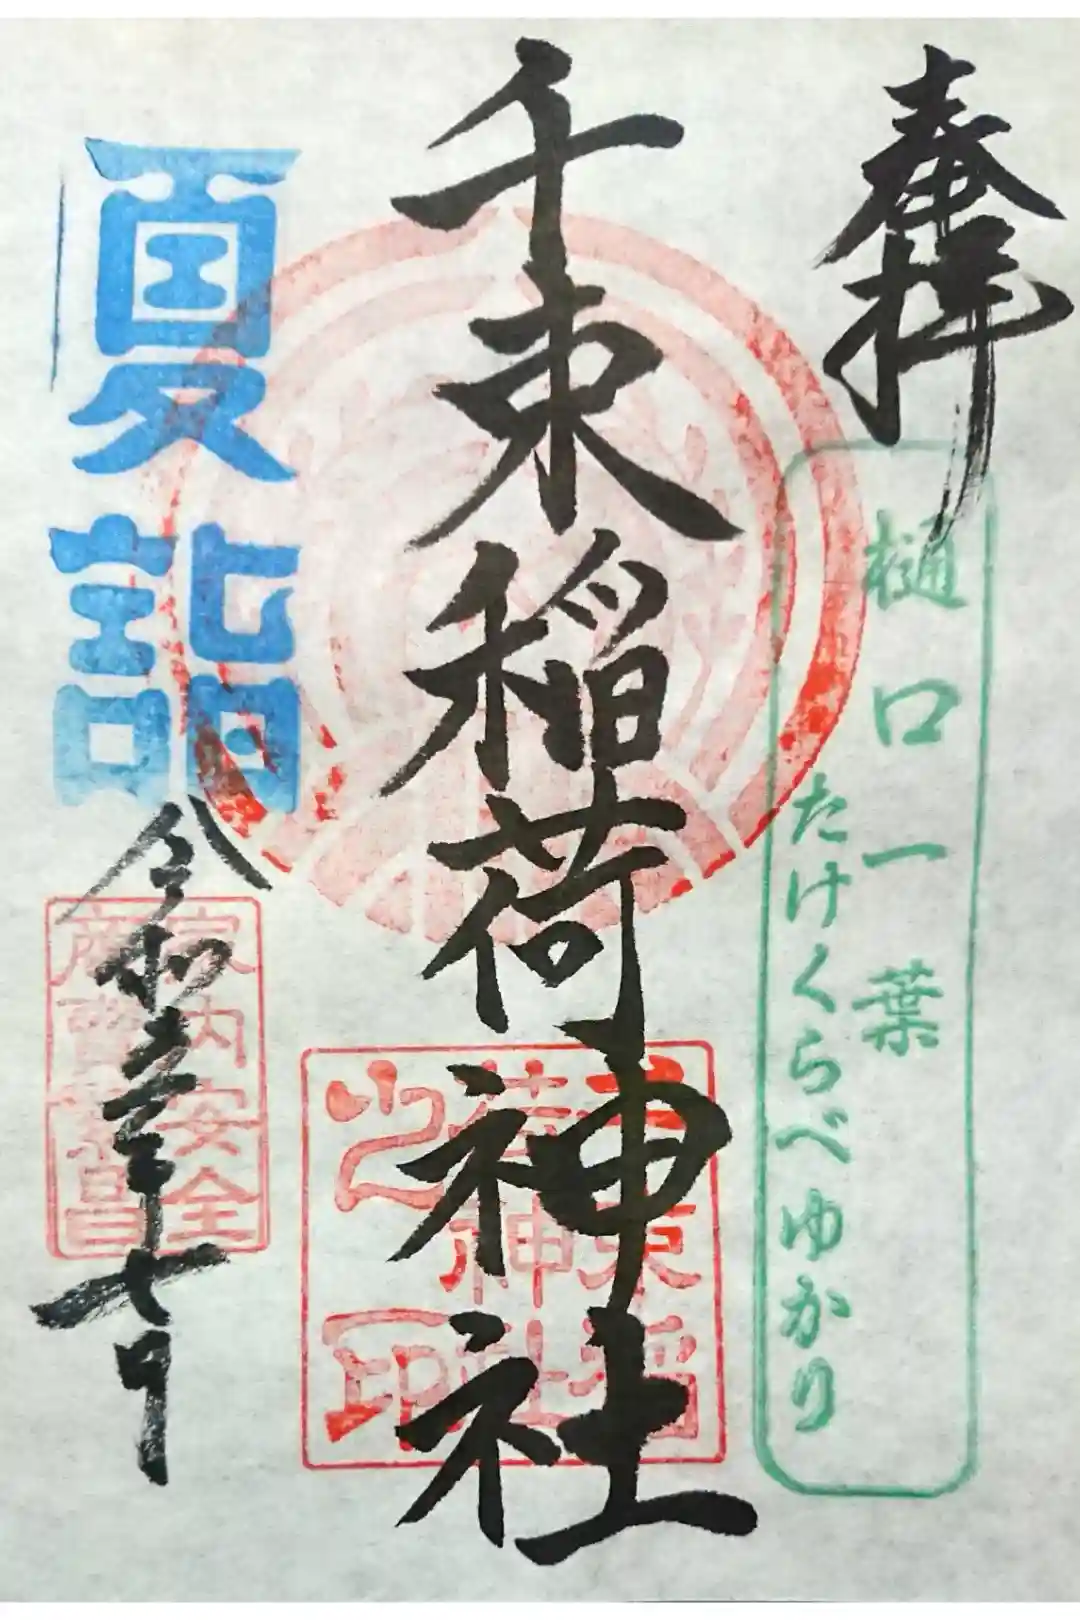 奉拝
樋口一葉
たけくらべゆかり
千束稲荷神社
千束稲
荷神社
之印
夏詣
家内安全
商売繁昌
令和
七日